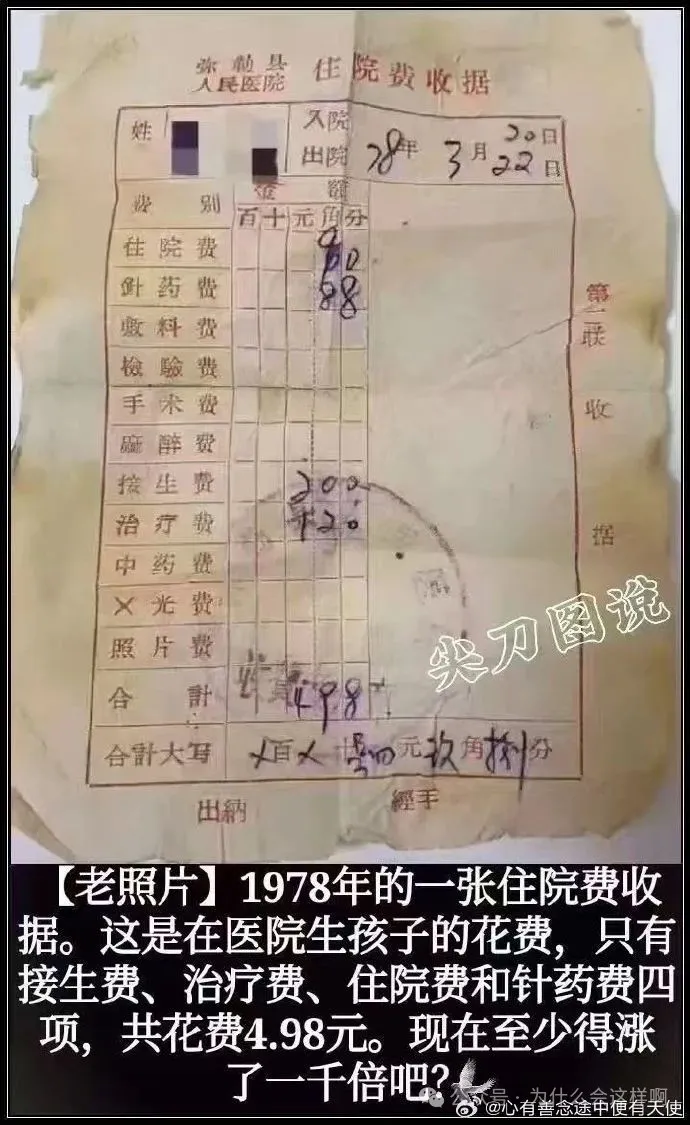 弥勒县
人民医院 住院费收据
姓 入院 78年 3月 20日
出院 22日
费别 金额
百十元角分
住院费 90
針药费 88
敷料费
檢驗费
手术费
麻醉费
接生费 200
治疗费 120
中药费
X光费
照片费
合計 498
合計大写 X百X十 肆元玖角捌分
出納 經手
第一联 收据
尖刀图说
【老照片】1978年的一张住院费收
据。这是在医院生孩子的花费，只有
接生费、治疗费、住院费和针药费四
项，共花费4.98元。现在至少得涨
了一千倍吧？
公众号：为什么会这样啊
@心有善念途中便有天使